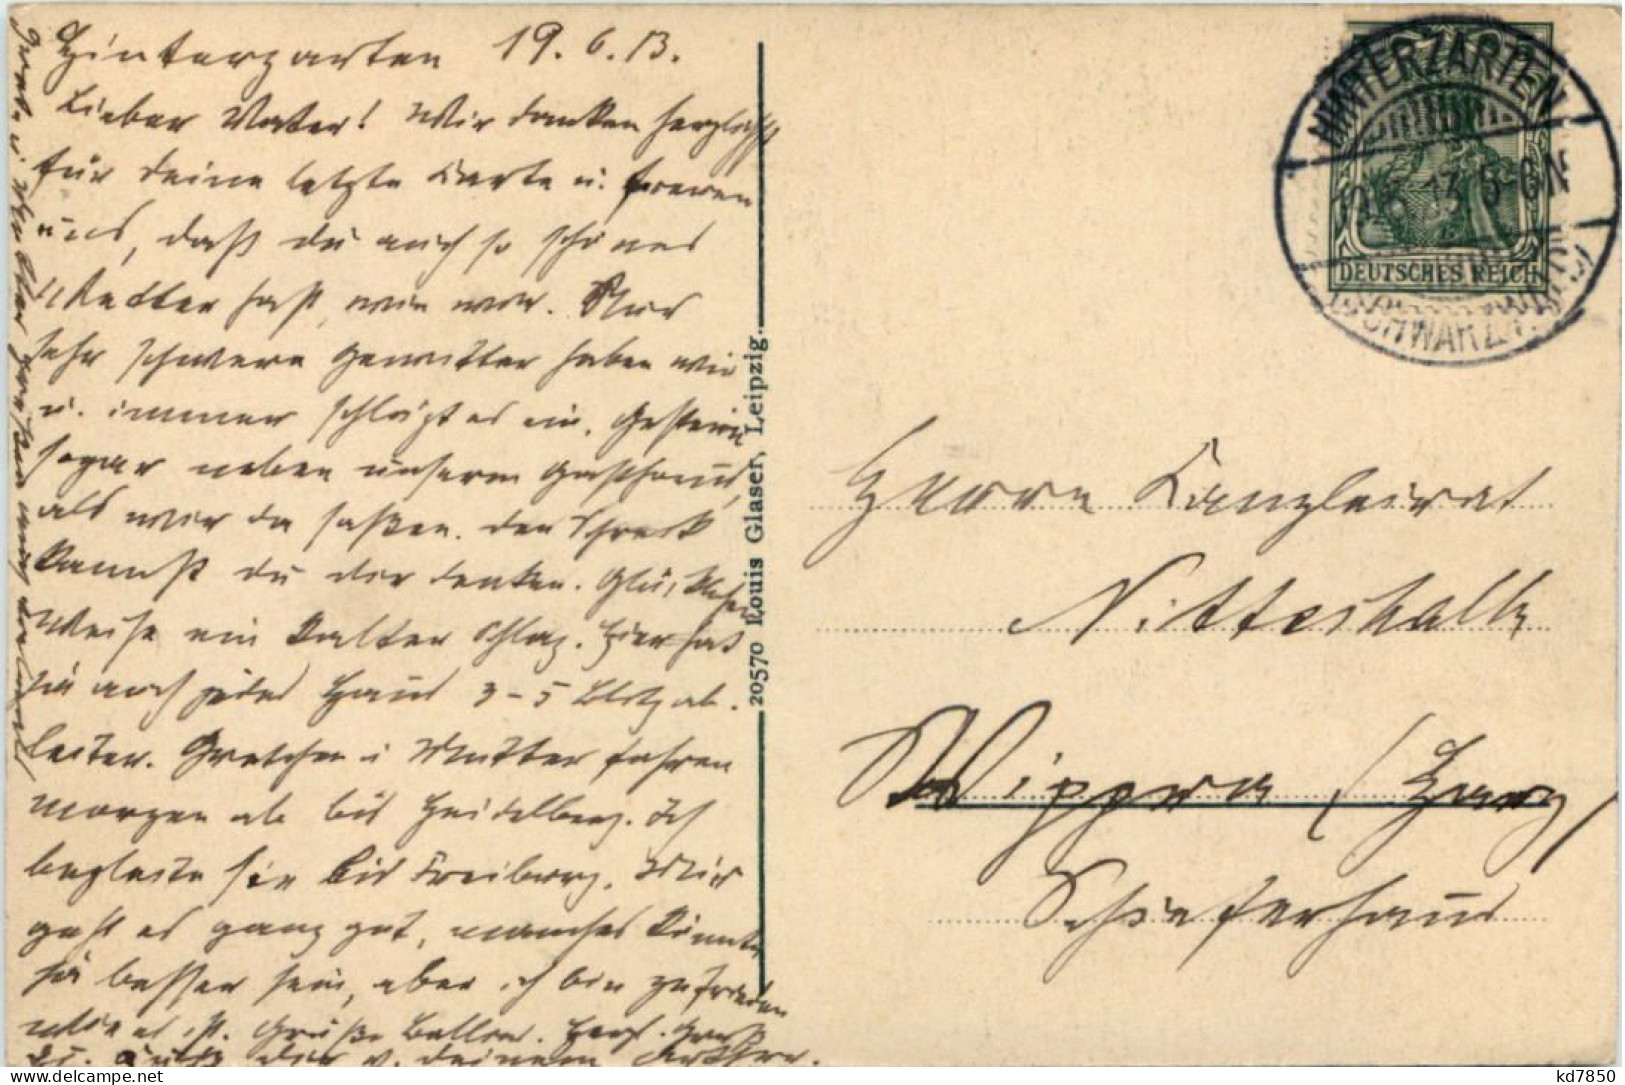 Hinterzarten 19.6.13.
Lieber Vater! Wir danken herzlichst
für deine letzte Karte u. freuen
uns, daß du auch so schönes
Wetter hast, wie wir. Nur
sehr schwere Gewitter haben wir
u. immer schlägt es ein. Gestern
sogar neben unserm Gasthaus,
als wir da saßen. Den Schreck
kannst du dir denken. Glücklicher
Weise ein kalter Schlag. Hier hat
ja auch jedes Haus 3-5 Blitzabl.
leiter. Gretchen u Mutter fahren
morgen ab bis Heidelberg. Ich
begleite sie bis Freiburg. Mir
geht es ganz gut, manches könnte
ja besser sein, aber ich bin zufrieden
wie es ist. Grüße
dir v. deinem Arthur.
HINTERZARTEN
19.6.13 5-6N
(SCHWARZWALD)
DEUTSCHES REICH
20570 Louis Glaser, Leipzig.
Herrn Kanzleirat
Nitteshalk
Wippra (Harz)
Schieferhaus
kd7850